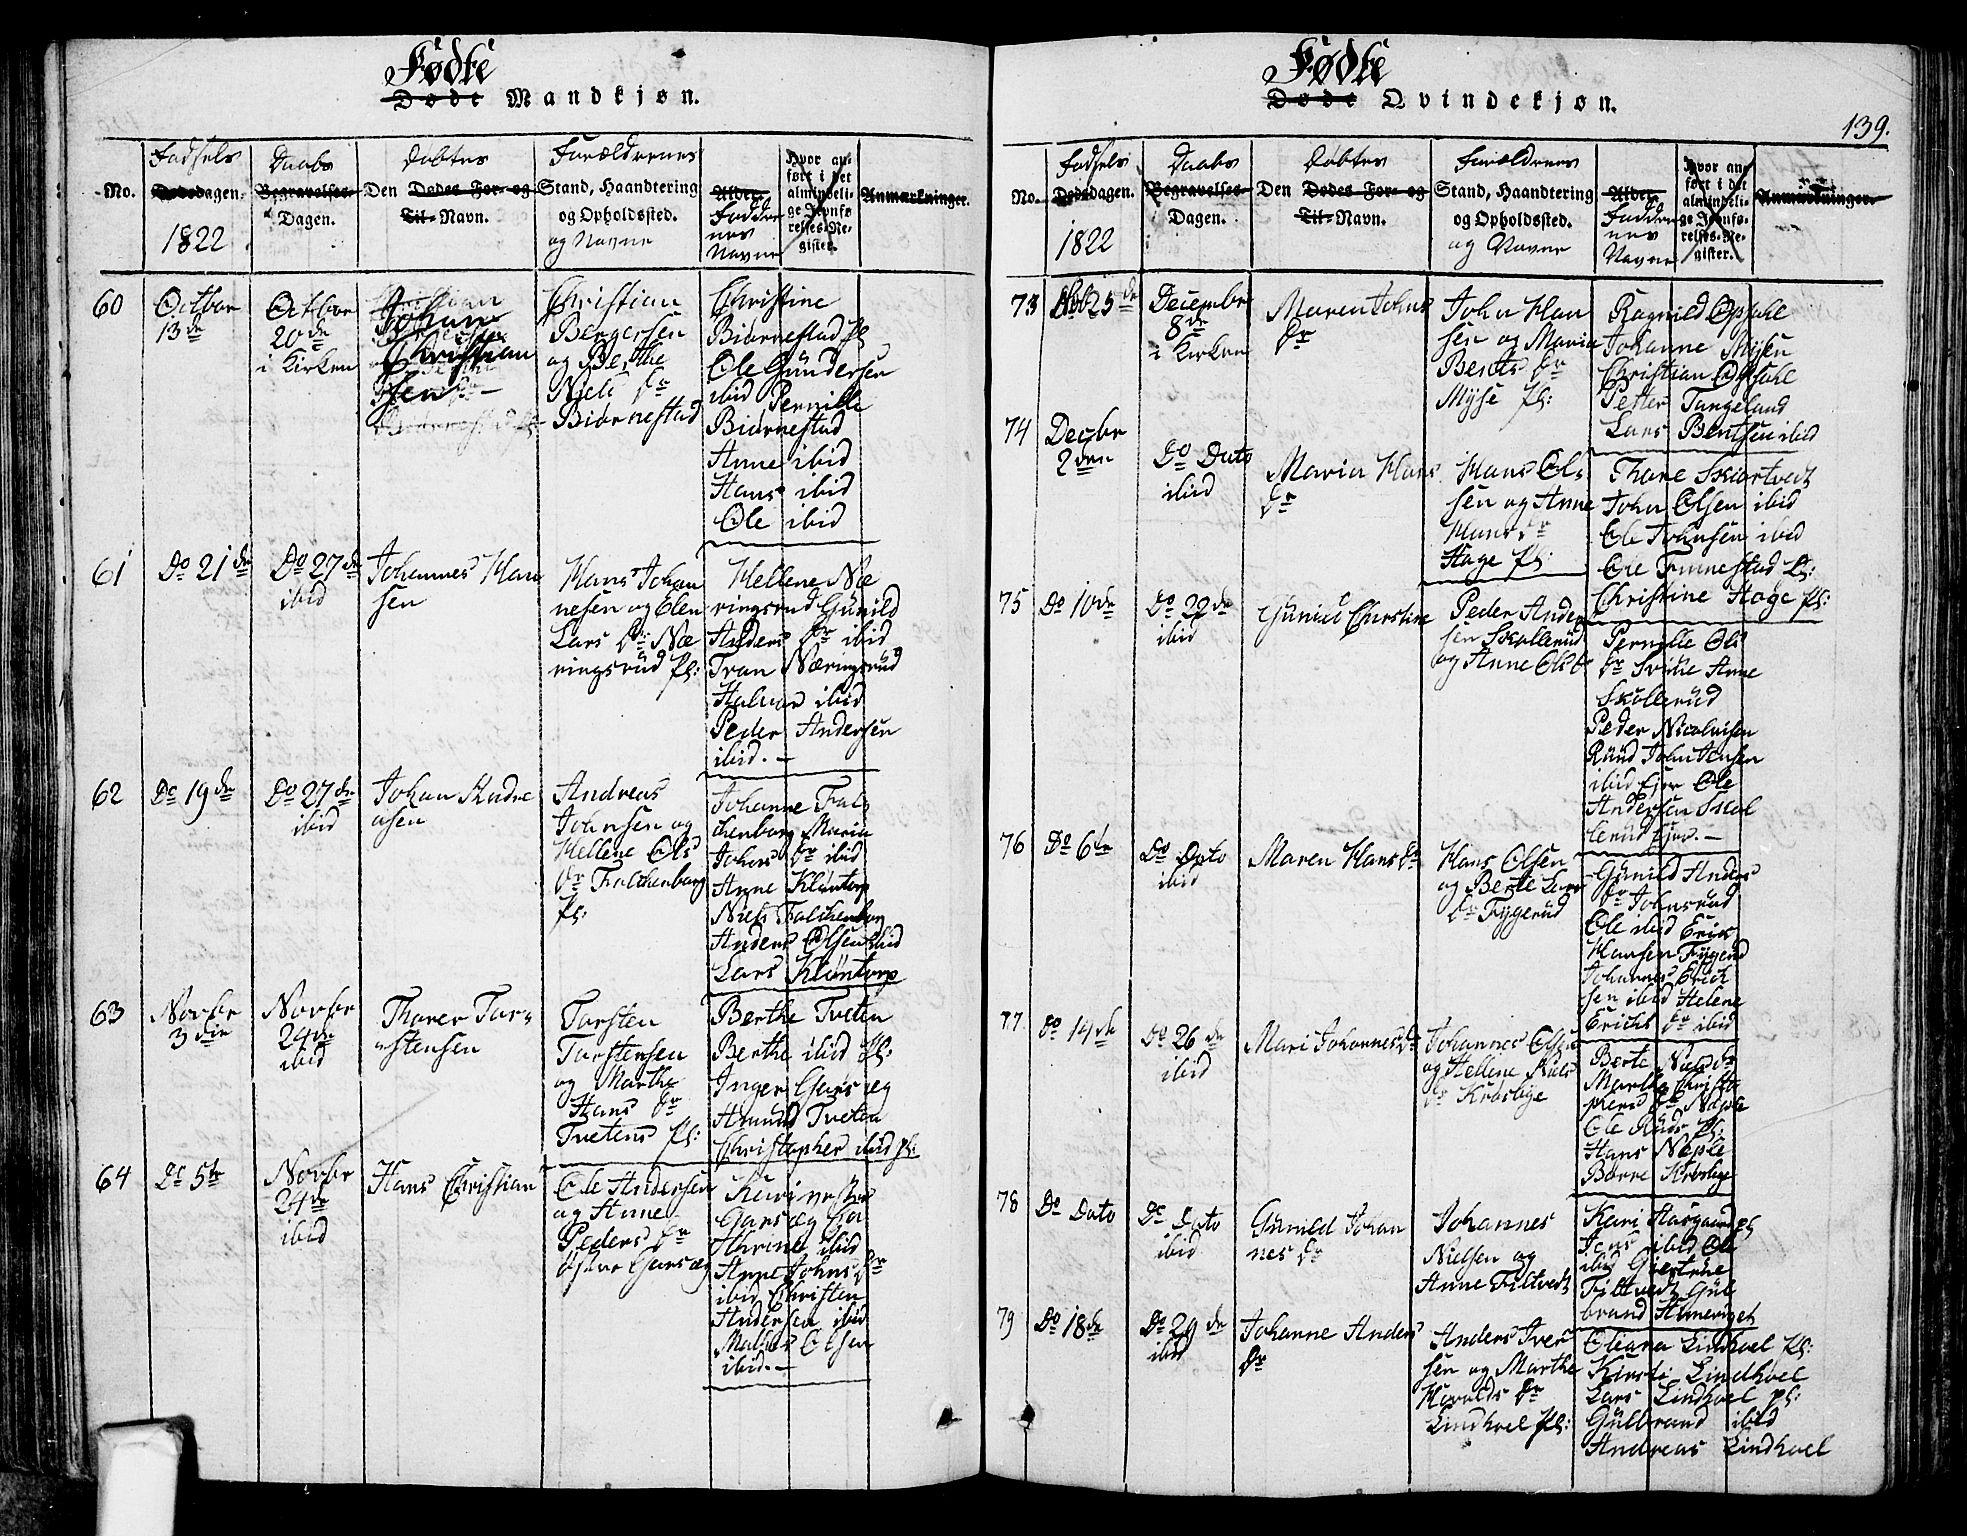 Fødte
Døde Mandkjøn.
No.
Fødsels
Dødsdagen.
1822
Daabs
Begravelses-
Dagen.
Døbtes
Den Dødes For- og
Til-Navn.
Forældrenes
Stand, Haandtering
og Opholdssted.
og Navne
Alder.
Fadder
nes
Navne
Hvor an-
ført i det
almindeli-
ge Jevnfø-
relses-Re-
gister.
Anmærkninger.
60
Octbar
13de
Octbar
20de
i Kirken
Johan
Christian
sen
Christian
Bergersen
og Berthe
Niels Dr
Biørnestad
Christine
Biørnestad pl
Ole Gundersen
ibid Pernille
Biørnestad
Anne ibid
Hans ibid
Ole ibid
61
Do 21de
Do 27de
ibid
Johannes Han
sen
Hans Johan
nesen og Elen
Lars Dr Næ
ringsrud pl:
Hellene Næ
ringsrud Gunild
Anders Dr ibid
Iran Næringsrud
Halvor ibid
Peder Andersen
ibid. –
62
Do 19de
Do 27de
ibid
Johan Andre
asen
Andreas
Johnsen og
Hellene Ols
Dr Falchenborg
pl:
Johanne Fal
chenborg Maria
Johns Dr ibid
Anne Kløntorp
Niels Falchenborg
Anders Olsen ibid
Lars Kløntorp
63
Novbr
3die
Novbr
24de
ibid
Tharer Tor-
stensen
Torsten
Torstensen
og Marthe
Hans Dr
Tvetens pl:
Berthe Tveten
Berthe ibid pl:
Inger Garsæg
Amund Tveten
Christopher ibid pl:
64
Do 5te
Novbr
24de
ibid
Hans Christian
Ole Andersen
og Anne
Peders Dr
østre Garsæg
Kari østre
Garsæg
Thrine ibid
Anne Johns Dr
ibid Christen
Andersen ibid
Olsen
ibid. –
139.
Fødte
Døde Qvindekjøn.
No.
Fødsels
Dødsdagen.
1822
Daabs
Begravelses-
Dagen.
Døbtes
Den Dødes For- og
Til-Navn.
Forældrenes
Stand, Haandtering
og Opholdssted.
og Navne
Alder.
Fadder
nes
Navne
Hvor an-
ført i det
almindeli-
ge Jevnfø-
relses-Re-
gister.
Anmærkninger.
73
25de
Decembr
8de
i Kirken
Maren Johns
Dr
John Han
sen og Maria
Bents Dr
Myse pl:
Ragnild Opsahl
Johanne Mysen
Christian Opsahl
Petter Tangeland
Lars Bentsen ibid
74
Decbr
2den
Do Dato
ibid
Maria Hans
Dr
Hans Ol
sen og Anne
Hans Dr
Hage pl.
Thore Skiortvedt
John Olsen ibid
Ole Johansen ibid
Ole Finnestad pl:
Christine Hage pl:
75
Do 10de
Do 22de
ibid
Gunild Christine
Peder Ander
sen Skollerud
og Anne Ols Dr
Pernille Ols
Dr Anne
Skollerud
Peder Nicolaisen
Rund John Jensen
ibid Ejer Ole
Andersen Skol
lerud Ejer. –
76
Do 6te
Do Dato
ibid
Maren Hans Dr
Hans Olsen
og Berte Lars
Dr Fygerud
Gunild Anders
Dr Johnsrud
Ole ibid Erik
Hansen Fygerud
Johannes Erich
sen ibid Helene
Erichs Dr ibid
77.
Do 14de
Do 26de
ibid
Mari Johannes Dr
Johannes Olsen
og Hellene Niels
Dr Krosbye
Berte Niels Dr
Marthe Christo
phers Dr Næple
Ole Rud pl:
Hans Næple
Børre Krosbye
78
Do Dato
Do Dato
ibid
Gunild Johan
nes Dr
Johannes
Nielsen og
Anne Filtvedt
Kari Aasgaard pl
Jens ibid Ole
ibid
Filtvedt Gul
brand
79
Do 18de
Do 29de
ibid
Johanne Anders
Dr
Anders Iver
sen og Marthe
Haralds Dr
Lindhoel pl:
Eleana Lindhoel pl:
Kirsti Lindhoel
Lars Lindhoel pl:
Gulbrand ibid
Andreas Lindhoel